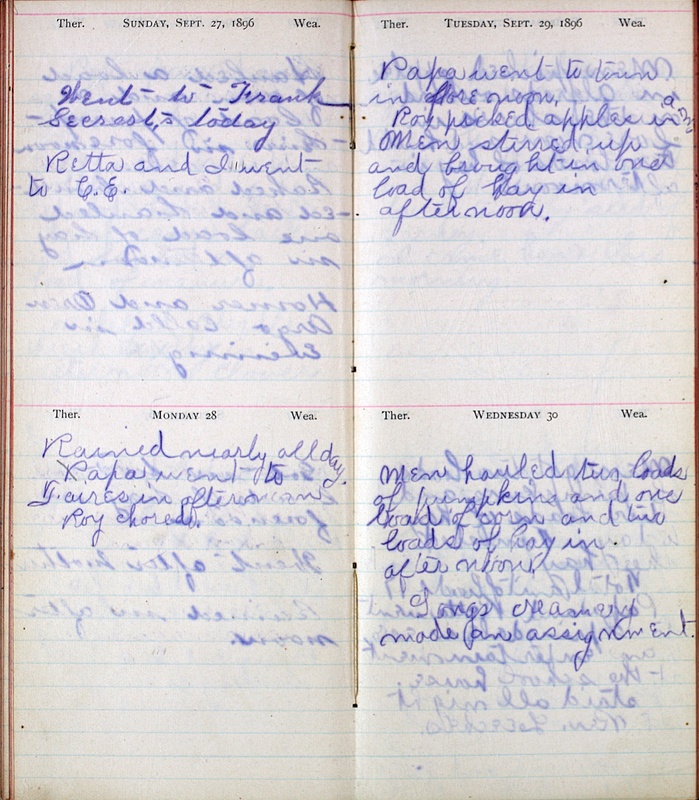 Ther. SUNDAY, SEPT. 27, 1896 Wea.
Went to Frank
Secrest,s today
Retta and I went
to C.E.
Ther. MONDAY 28 Wea.
Rained nearly all day.
Papa went to
in afternoon
Roy chored.
Ther. TUESDAY, SEPT. 29, 1896 Wea.
Papa went to town
in forenoon,
Roy picked apples in a.m.
Men stirred up
and brought in one
load of hay in
afternoon.
Ther. WEDNESDAY 30 Wea.
Men hauled two loads
of pumpkins and one
load of corn and two
loads of hay in
afternoon.
creamery
made an assignment.